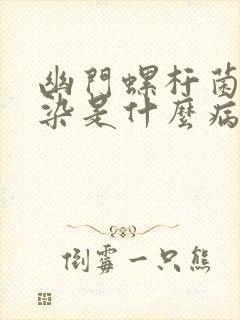 幽門螺杆菌
染是什麼病
倒霉一只熊